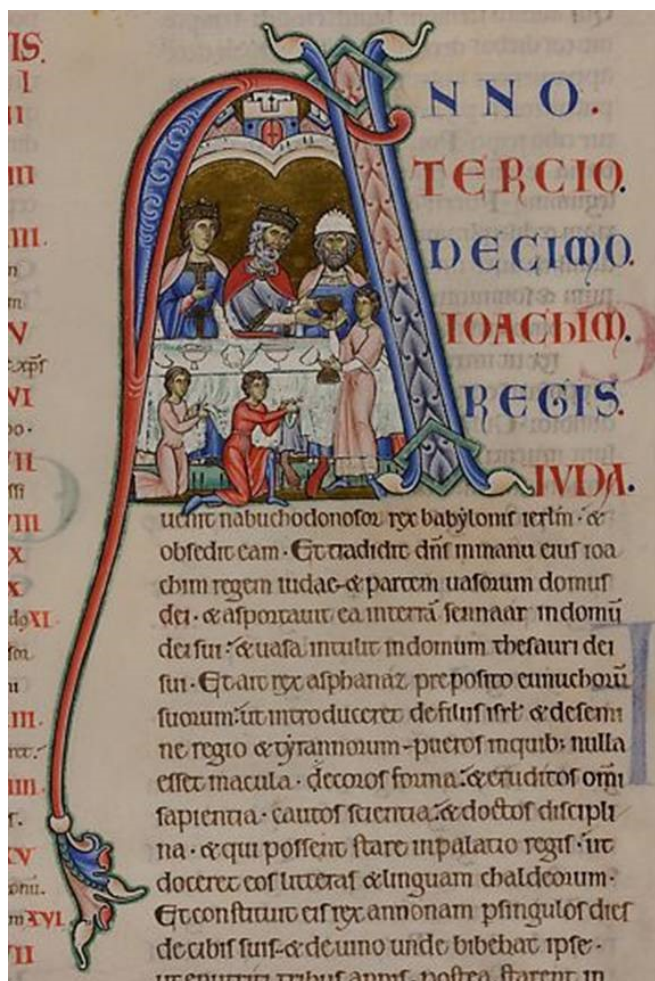 ANNO.
TERCIO.
DECIMO.
IOACHIM.
REGIS.
IUDA.
uenit nabuchodonosor rex babylonis ierlm · &
obsedit eam · Et tradidit dns in manu eius ioa
chim regem iudae · & partem uasorum domus
dei · & asportauit ea in terrā sennaar in domū
dei sui : & uasa intulit in domum thesauri dei
sui · Et ait rex asphanaz preposito eunuchorū
suorum : ut introduceret de filiis isrl & de semi
ne regio & tyrannorum · pueros in quib; nulla
esset macula · decoros forma : & eruditos omi
sapientia · cautos scientia : & doctos discipli
na · & qui possent stare in palatio regis · ut
doceret eos litteras & linguam chaldeorum ·
Et constituit eis rex annonam p singulos dies
de cibis suis · & de uino unde bibebat ipse ·
ut enutriti tribus annis · postea starent in